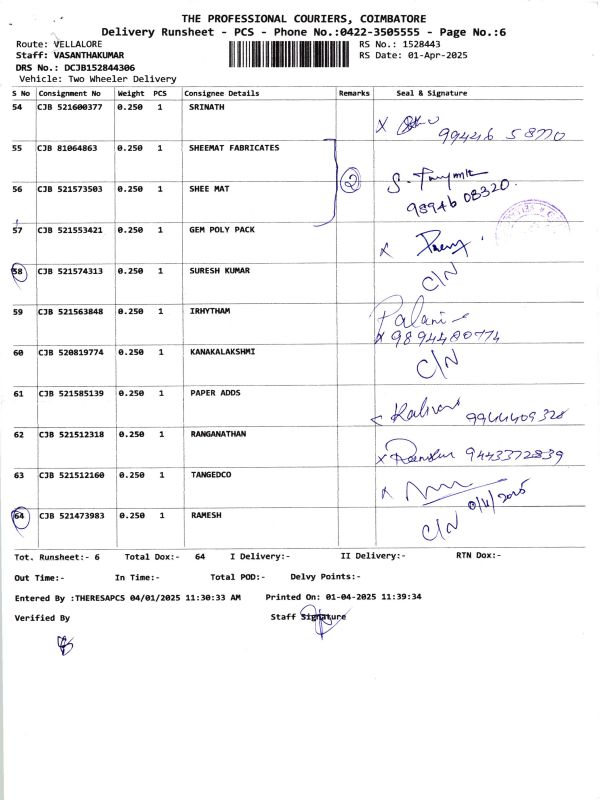 THE PROFESSIONAL COURIERS, COIMBATORE
Delivery Runsheet - PCS - Phone No.:0422-3505555 - Page No.:6
Route: VELLALORE RS No.: 1528443
Staff: VASANTHAKUMAR RS Date: 01-Apr-2025
DRS No.: DCJB152844306
Vehicle: Two Wheeler Delivery
S No Consignment No Weight PCS Consignee Details Remarks Seal & Signature
54 CJB 521600377 0.250 1 SRINATH
X 99446 58770
55 CJB 81064863 0.250 1 SHEEMAT FABRICATES
56 CJB 521573503 0.250 1 SHEE MAT 2
98946 08320.
57 CJB 521553421 0.250 1 GEM POLY PACK X
58 CJB 521574313 0.250 1 SURESH KUMAR C/N
59 CJB 521563848 0.250 1 IRHYTHAM Palani
X 9894480774
60 CJB 520819774 0.250 1 KANAKALAKSHMI C/N
61 CJB 521585139 0.250 1 PAPER ADDS
9944409328
62 CJB 521512318 0.250 1 RANGANATHAN
X 9443372839
63 CJB 521512160 0.250 1 TANGEDCO X
64 CJB 521473983 0.250 1 RAMESH C/N
Tot. Runsheet:- 6 Total Dox:- 64 I Delivery:- II Delivery:- RTN Dox:-
Out Time:- In Time:- Total POD:- Delvy Points:-
Entered By :THERESAPCS 04/01/2025 11:30:33 AM Printed On: 01-04-2025 11:39:34
Verified By Staff Signature